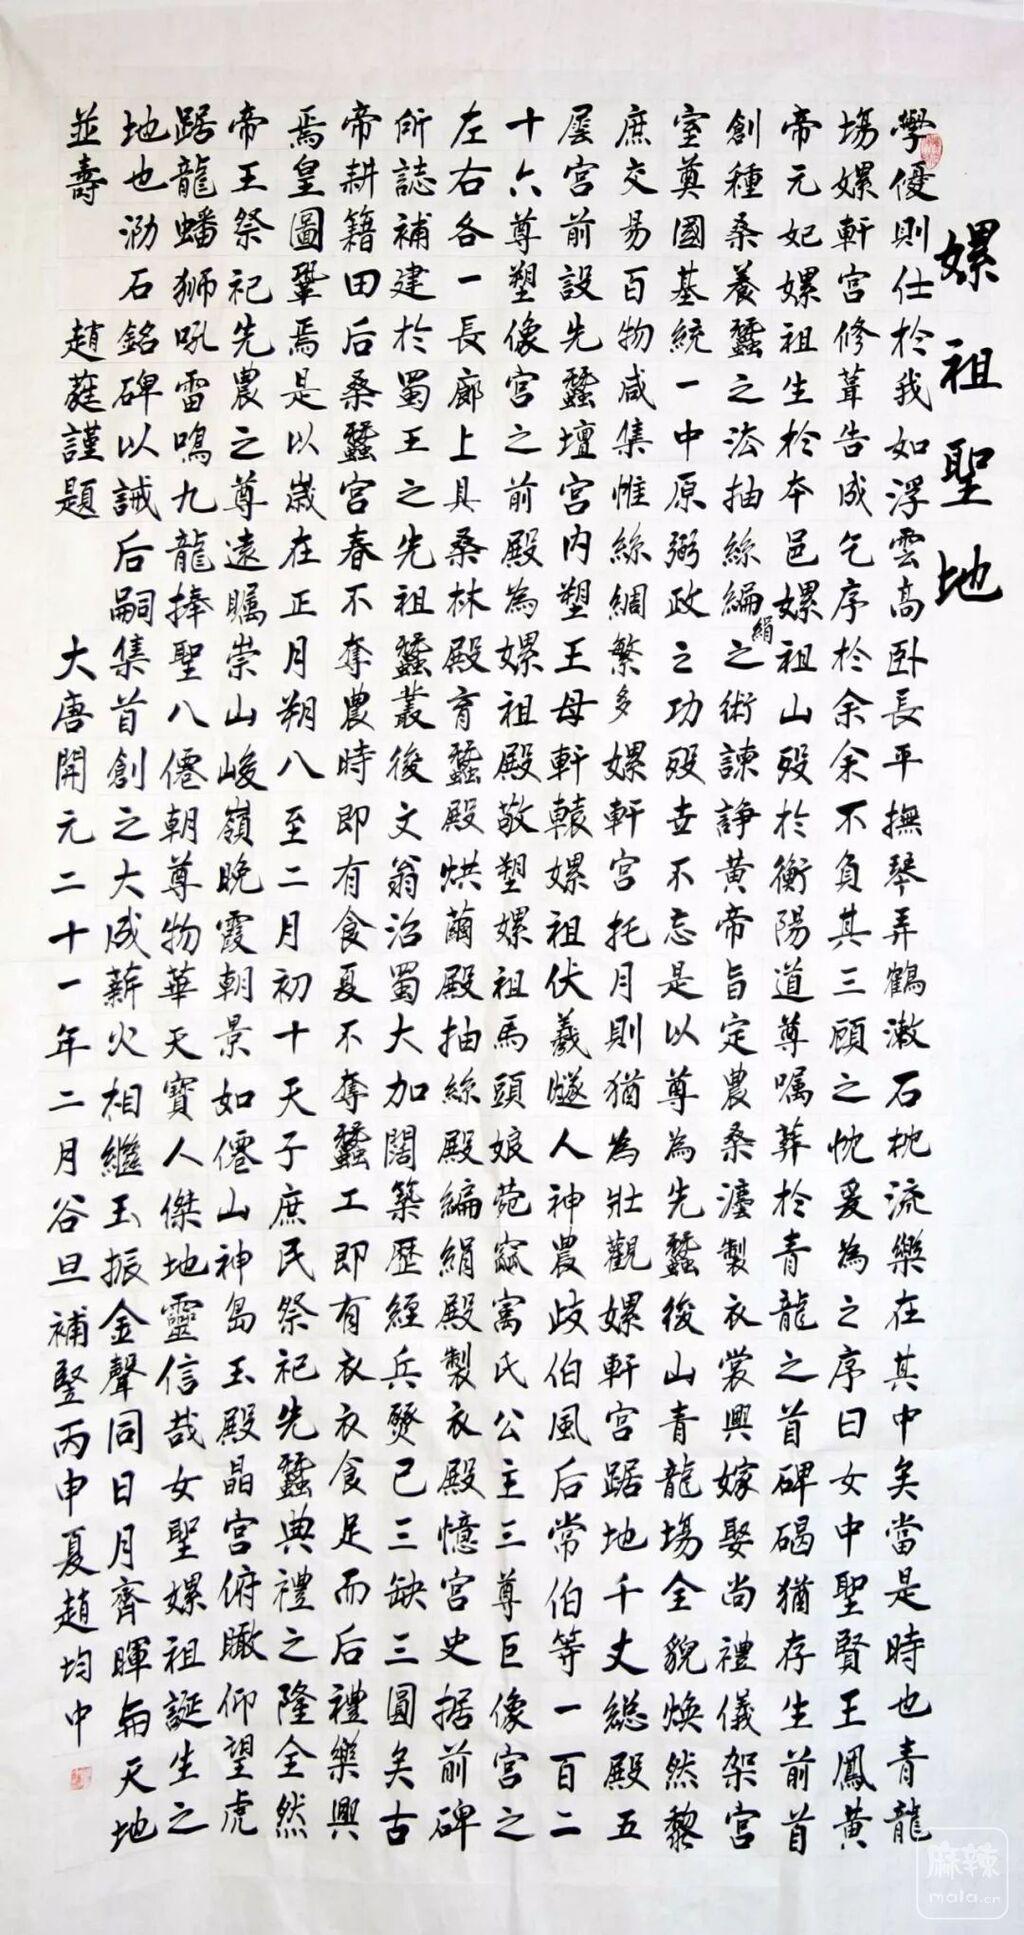 嫘祖聖地
學優則仕於我如浮雲高卧長平撫琴弄鶴漱石枕流樂在其中矣當是時也青龍
塲嫘軒宮修葺告成乞序於余余不負其三顧之忱爰為之序曰女中聖賢王鳳黃
帝元妃嫘祖生於本邑嫘祖山殁於衡陽道尊嘱葬於青龍之首碑碣猶存生前首
創種桑養蠶之法抽絲編絹之術諫諍黃帝旨定農桑灋製衣裳興嫁娶尚禮儀架宮
室奠國基統一中原弼政之功殁世不忘是以尊為先蠶後山青龍塲全貌焕然黎
庶交易百物咸集惟絲綢繁多嫘軒宮托月則猶為壯觀嫘軒宮踞地千丈總殿五
層宮前設先蠶壇宮内塑王母軒轅嫘祖伏羲燧人神農歧伯風后常伯等一百二
十六尊塑像宮之前殿為嫘祖殿敬塑嫘祖馬頭娘菀窳寓氏公主三尊巨像宮之
左右各一長廊上具桑林殿育蠶殿烘繭殿抽絲殿編絹殿製衣殿憶宮史据前碑
所誌補建於蜀王之先祖蠶叢後文翁治蜀大加闊築歷經兵燹已三缺三圓矣古
帝耕籍田后桑蠶宮春不奪農時即有食夏不奪蠶工即有衣衣食足而后禮樂興
焉皇圖鞏焉是以歲在正月朔八至二月初十天子庶民祭祀先蠶典禮之隆全然
帝王祭祀先農之尊遠矚崇山峻嶺晚霞朝景如僊山神島玉殿晶宮俯瞰仰望虎
踞龍蟠狮吼雷鳴九龍捧聖八僊朝尊物華天寶人傑地靈信哉女聖嫘祖誕生之
地也泐石銘碑以誡后嗣集首創之大成薪火相繼玉振金聲同日月齊暉與天地
並壽 趙蕤謹題 大唐開元二十一年二月谷旦補竪丙申夏趙均中
麻辣
mala.cn